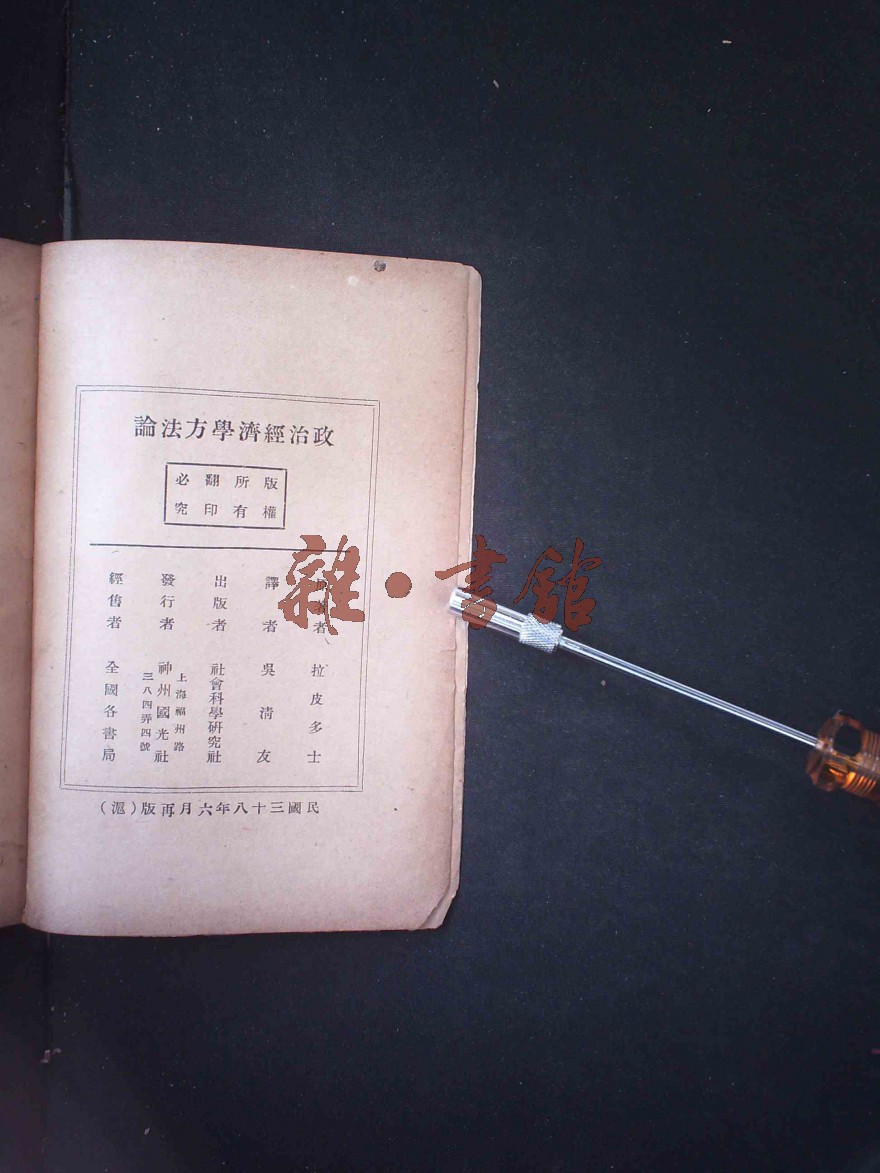 政治經濟學方法論
版權
所有
翻印
必究
者 拉皮多士
譯者 吳清友
出版者 社會科學研究社
發行者 神州國光社
上海福州路
三八四弄四號
經售者 全國各書局
民國三十八年六月再版（滬）
雜·書館